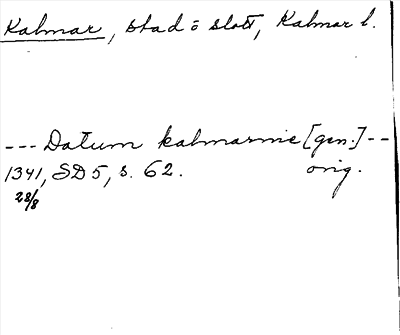 Kalmar, stad o slott, Kalmar l.
--- Datum kalmarnie [gen.] --
1341, SD 5, s. 62. orig.
28/8